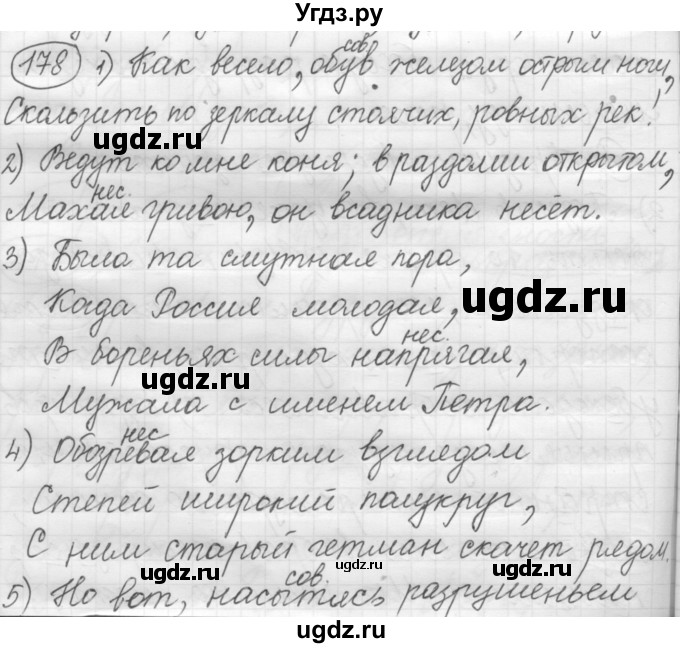 Угдз.ру
178 1) Как весело, обув (сов.) железом острым ноги,
Скользить по зеркалу стоячих, ровных рек!
ugdz.ru
2) Ведут ко мне коня; в раздолии открытом,
Махая (нес.) гривою, он всадника несёт.
ugdz.ru
3) Была та смутная пора,
Когда Россия молодая,
ugdz.ru
В бореньях силы напрягая (нес.),
ugdz.ru
Мужала с именем Петра.
4) Обозревая (нес) зорким взглядом
Степей широкий полукруг,
С ним старый гетман скачет рядом.
ugdz.ru
ugdz.ru
ugdz.ru
5) Но вот, насытясь (сов.) разрушеньем
ugdz.ru